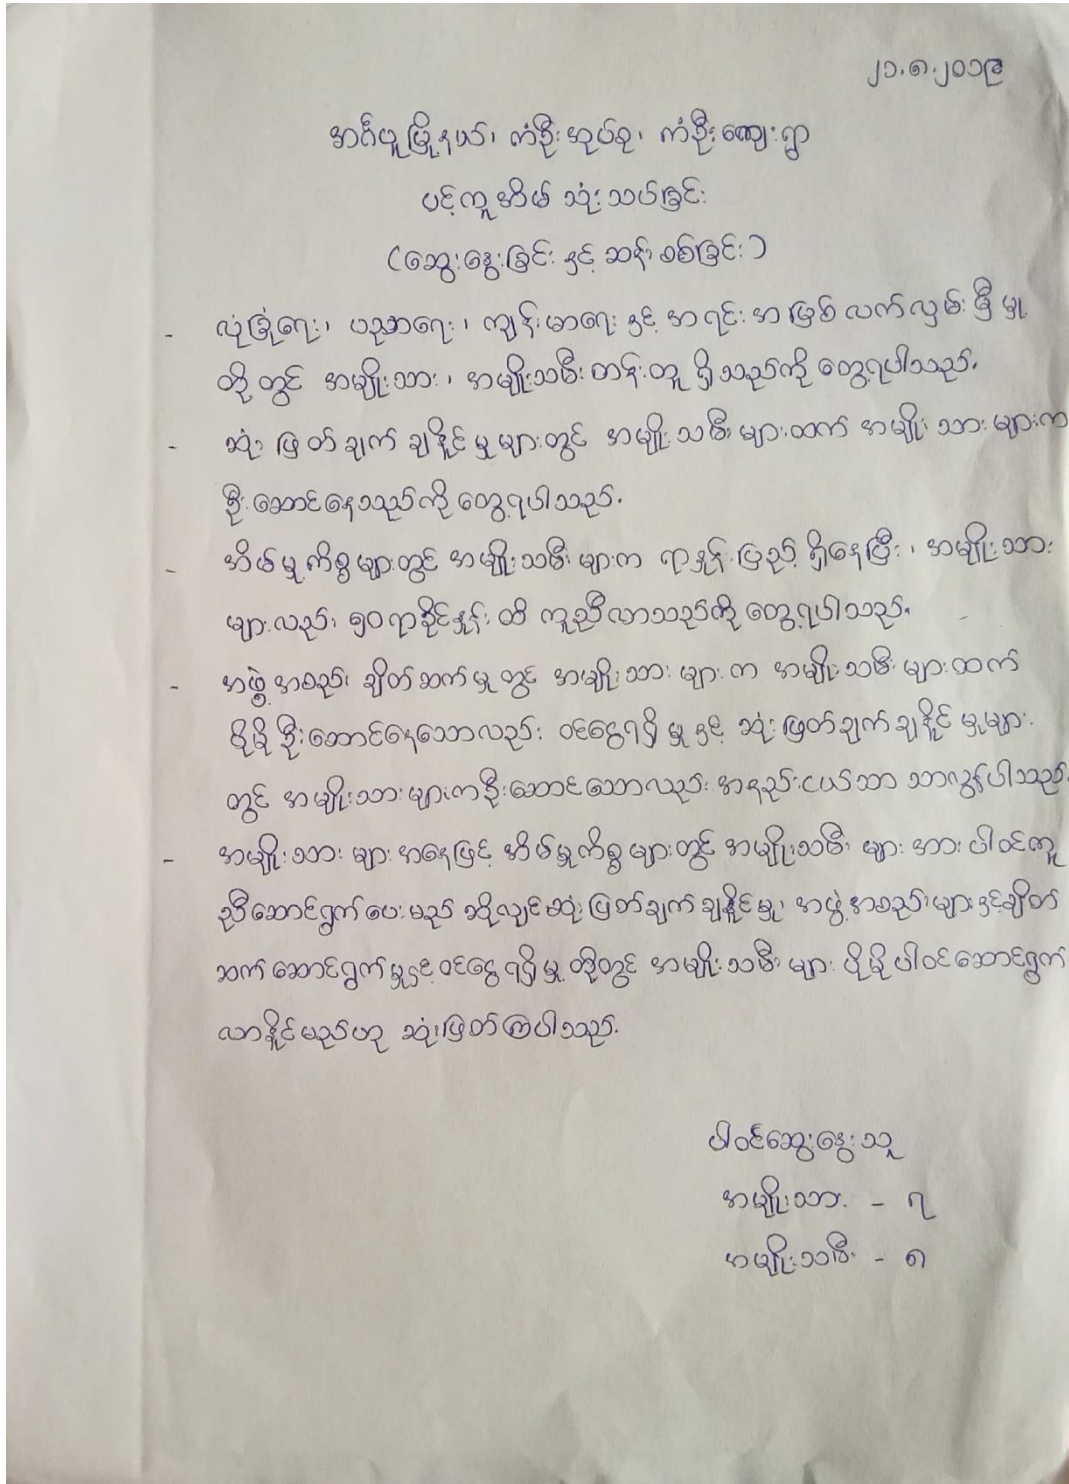 ၂၁.၈.၂၀၁၉
အင်္ဂပူမြို့နယ်၊ ကံဦးအုပ်စု၊ ကံဦးဈေးရွာ
ပင့်ကူအိမ် သုံးသပ်ခြင်း
(ဆွေးနွေးခြင်း နှင့် ဆန်းစစ်ခြင်း)
- လုံခြုံရေး၊ ပညာရေး၊ ကျန်းမာရေး နှင့် အရင်းအမြစ် လက်လှမ်းမှီ မှု
တို့တွင် အမျိုးသား၊ အမျိုးသမီး တန်းတူ ရှိသည်ကို တွေ့ရပါသည်။
- ဆုံးဖြတ်ချက် ချနိုင်မှု များတွင် အမျိုးသမီးများထက် အမျိုးသားများက
ဦးဆောင်နေသည်ကို တွေ့ရပါသည်။
- အိမ်မှုကိစ္စများတွင် အမျိုးသမီးများက ရာနှုန်းပြည့် ရှိနေပြီး၊ အမျိုးသား
များလည်း ၅၀ ရာခိုင်နှုန်း ထိ ကူညီလာသည်ကို တွေ့ရပါသည်။
- အဖွဲ့အစည်း ချိတ်ဆက်မှုတွင် အမျိုးသားများက အမျိုးသမီးများထက်
ပိုမို ဦးဆောင်နေသော်လည်း ဝင်ငွေရရှိမှု နှင့် ဆုံးဖြတ်ချက်ချနိုင်မှုများ
တွင် အမျိုးသားများကဦးဆောင်သော်လည်း အနည်းငယ်သာ သာလွန်ပါသည်။
- အမျိုးသားများအနေဖြင့် အိမ်မှုကိစ္စများတွင် အမျိုးသမီးများအား ပါဝင်ကူ
ညီဆောင်ရွက်ပေးမည် ဆိုလျှင်ဆုံးဖြတ်ချက်ချနိုင်မှု၊ အဖွဲ့အစည်းများနှင့်ချိတ်
ဆက်ဆောင်ရွက်မှုနှင့် ဝင်ငွေရရှိမှု တို့တွင် အမျိုးသမီးများ ပိုမိုပါဝင်ဆောင်ရွက်
လာနိုင်မည်ဟု ဆုံးဖြတ်ကြပါသည်။
ပါဝင်ဆွေးနွေးသူ
အမျိုးသား - ၇
အမျိုးသမီး - ၈